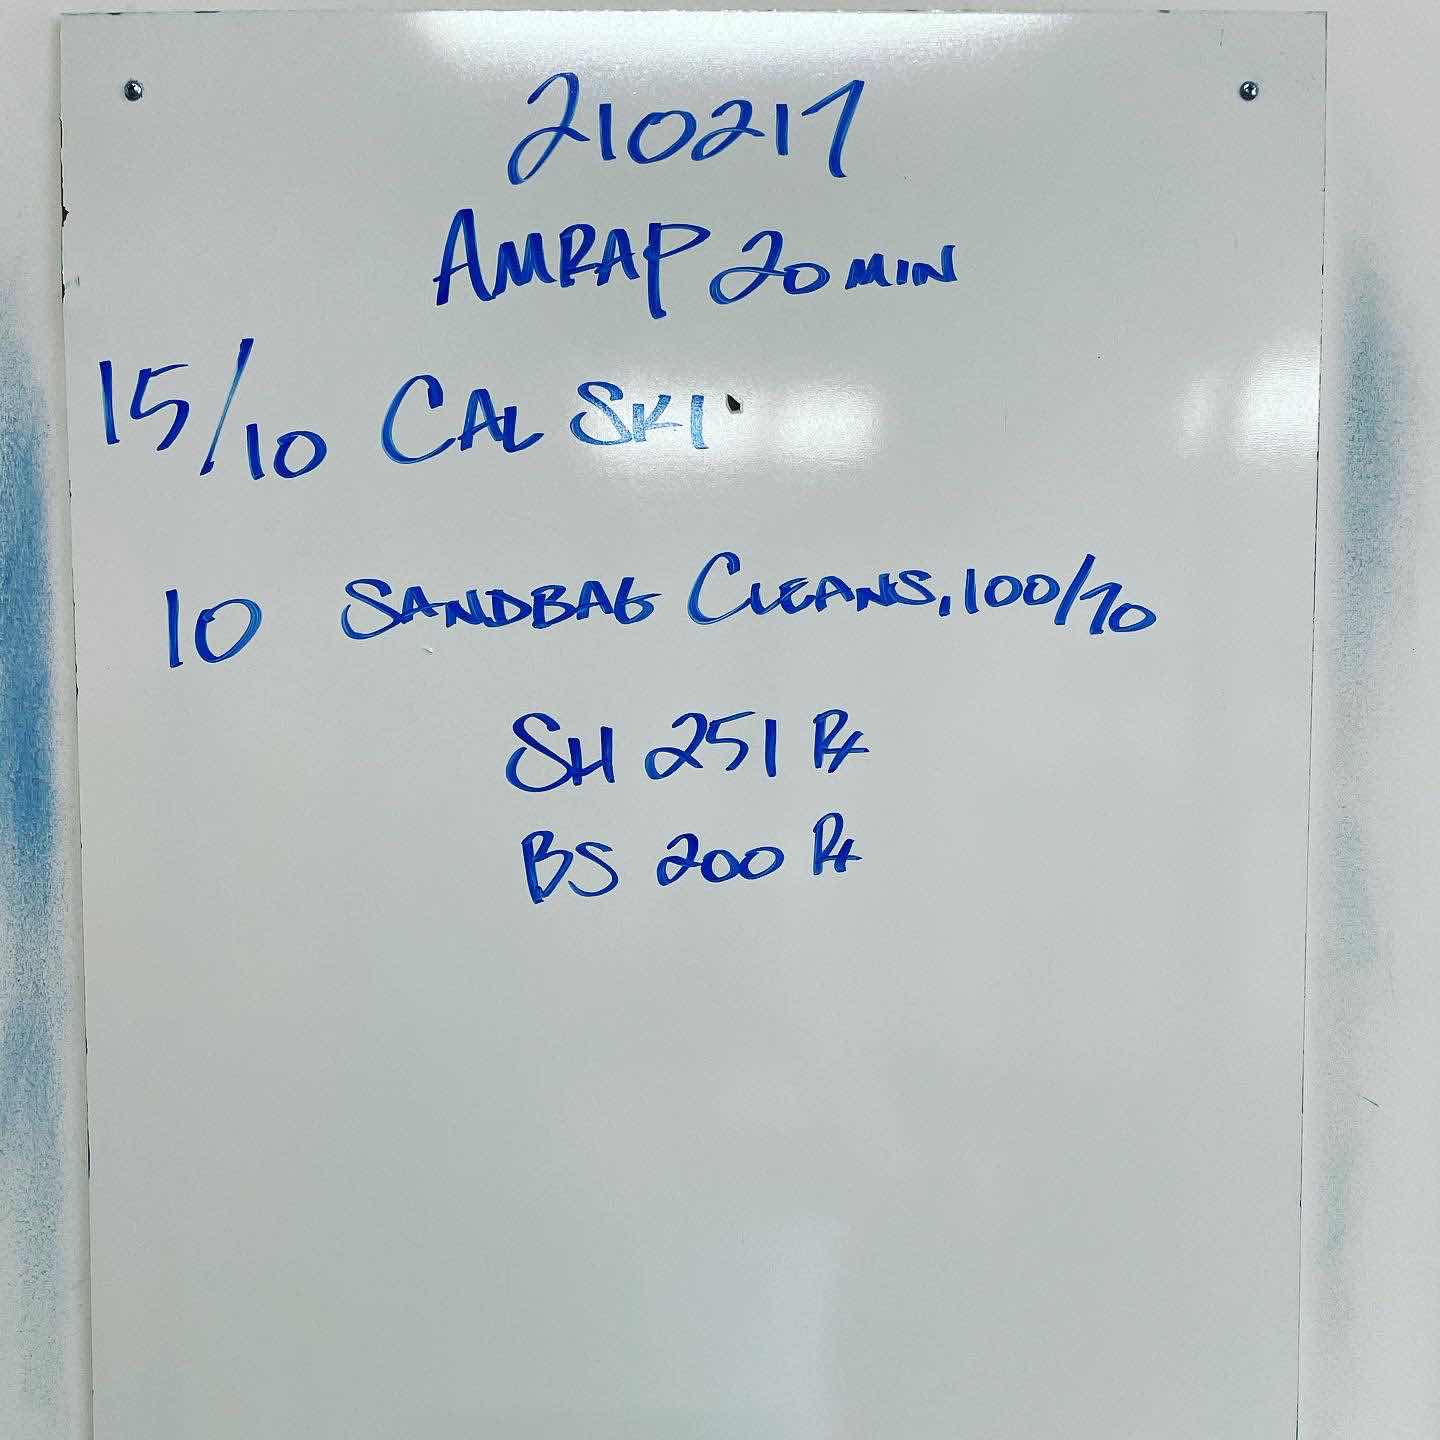 210217
AMRAP 20 MIN
15/10 CAL SKI
10 SANDBAG CLEANS, 100/70
SH 251 Rx
BS 200 Rx